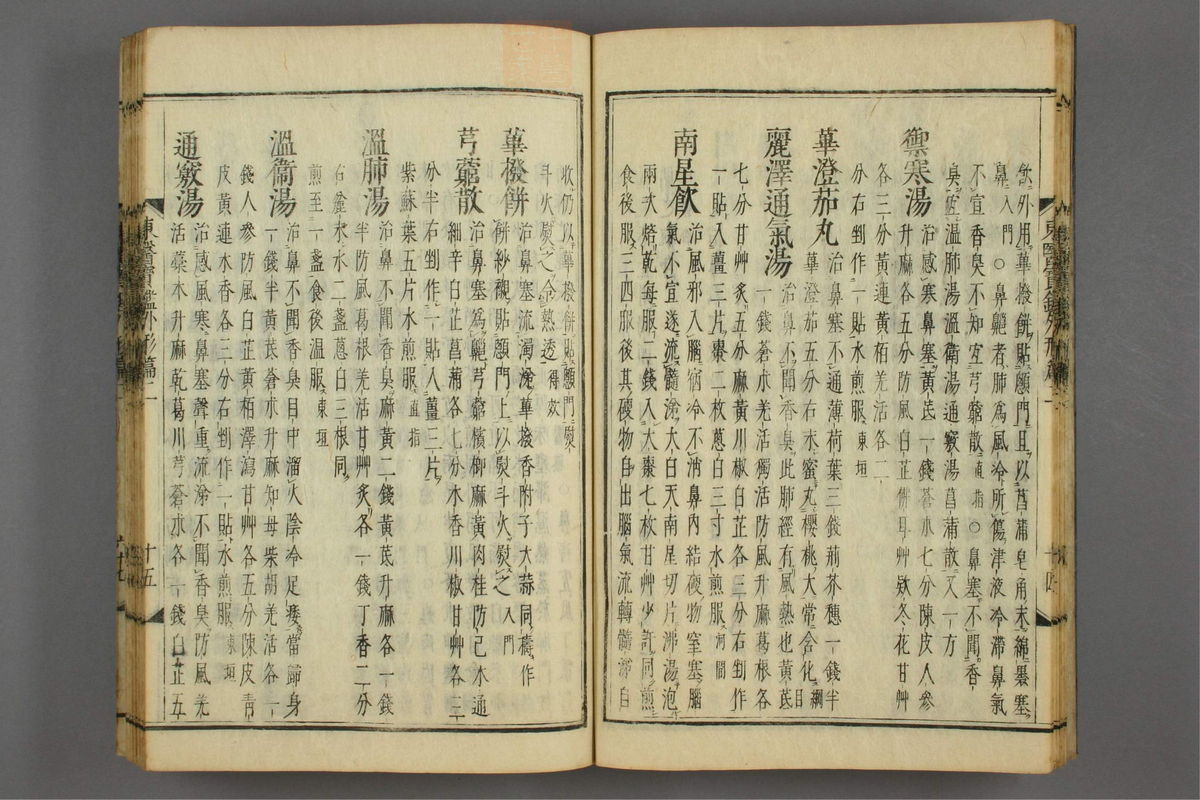 飮外用蓽撥餠貼顖門且以菖蒲皂角末綿褁塞
鼻入門○鼻鼽者肺爲風冷所傷津液冷滯鼻氣
不宣香臭不知宜芎藭散直指○鼻塞不聞香
臭宜溫肺湯溫衛湯通竅湯菖蒲散又一方
禦寒湯 治感寒鼻塞黃芪一錢蒼朮七分陳皮人參
升麻各五分防風白芷佛耳艸欵冬花甘艸
各三分黃連黃栢羌活各二
分右剉作一貼水煎服東垣
蓽澄茄丸 治鼻塞不通薄荷葉三錢荊芥穗一錢半
蓽澄茄五分右末蜜丸櫻桃大常含化綱目
麗澤通氣湯 治鼻不聞香臭此肺經有風熱也黃芪
一錢蒼朮羌活獨活防風升麻葛根各
七分甘艸炙五分麻黃川椒白芷各三分右剉作
一貼入薑三片棗二枚蔥白三寸水煎服河間
南星飮 治風邪入腦宿冷不消鼻內結硬物窒塞腦
氣不宣遂流髓涕大白天南星切片沸湯泡
兩次焙乾每服二錢入大棗七枚甘艸少許同煎
食後服三四服後其硬物自出腦氣流轉髓涕自
收仍以蓽撥餠貼顖門熨
斗火熨之令熱透得效
蓽撥餠 治鼻塞流濁涕蓽撥香附子大蒜同擣作
餠紗襯貼顖門上以熨斗火熨之入門
芎藭散 治鼻塞爲鼽芎藭檳榔麻黃肉桂防己木通
細辛白芷菖蒲各七分木香川椒甘艸各三
分半右剉作一貼入薑三片
紫蘇葉五片水煎服直指
溫肺湯 治鼻不聞香臭麻黃二錢黃芪升麻各一錢
半防風葛根羌活甘艸炙各一錢丁香二分
右麄末水二盞蔥白三根同
煎至一盞食後温服東垣
溫衛湯 治鼻不聞香臭目中溜火陰冷足痿當歸身
一錢半黃芪蒼朮升麻知母柴胡羌活各一
錢人參防風白芷黃栢澤瀉甘艸各五分陳皮靑
皮黃連木香各三分右剉作一貼水煎服東垣
通竅湯 治感風寒鼻塞聲重流涕不聞香臭防風羌
活藁本升麻乾葛川芎蒼朮各一錢白芷五
東醫寶鑑外形篇二 十五